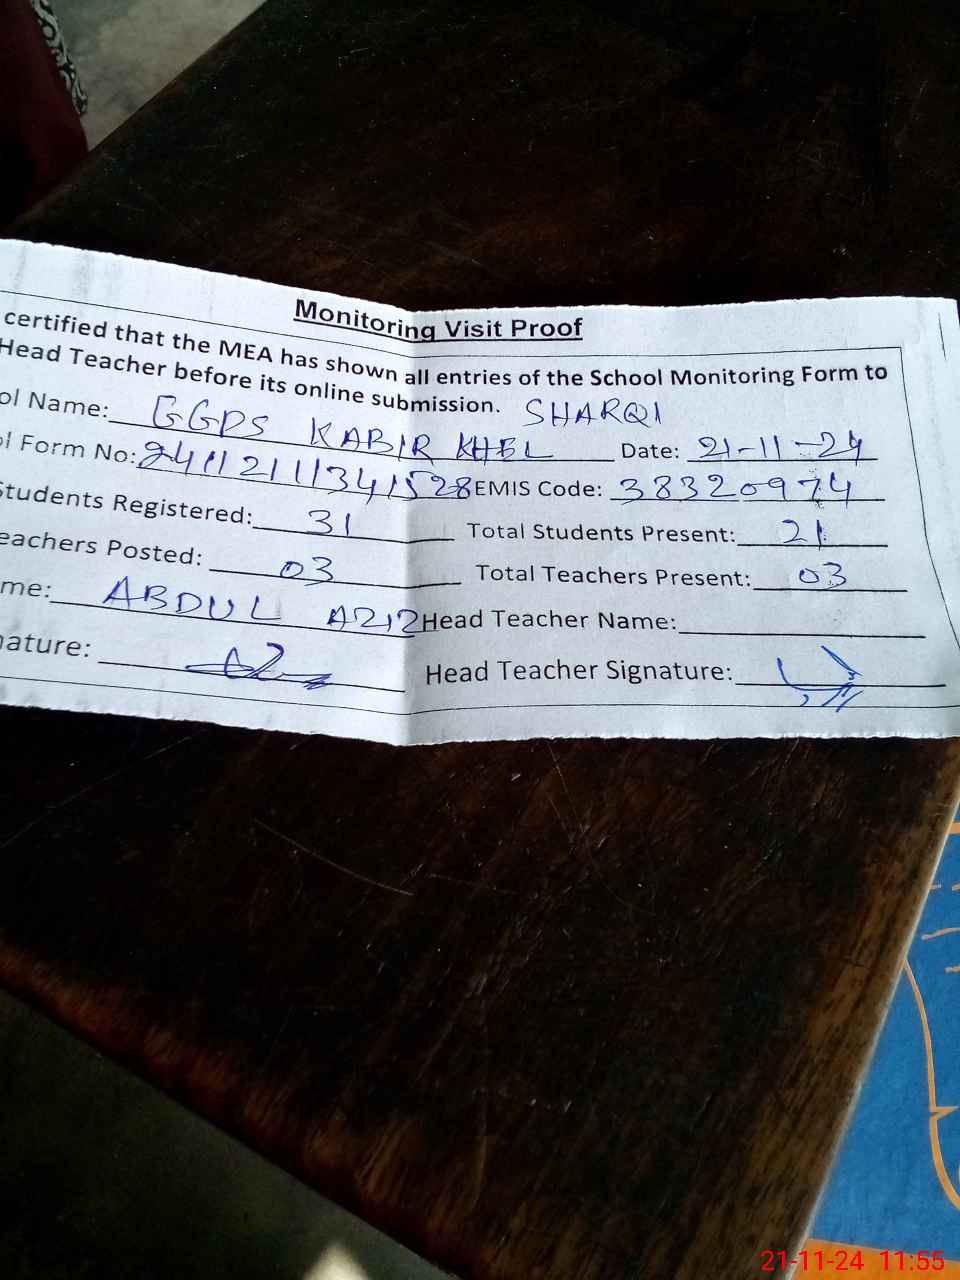 Monitoring Visit Proof
certified that the MEA has shown all entries of the School Monitoring Form to
Head Teacher before its online submission. SHARQI
ol Name: GGPS KABIR KHEL Date: 21-11-24
ol Form No: 24112111341528 EMIS Code: 38320974
Students Registered: 31 Total Students Present: 21
eachers Posted: 03 Total Teachers Present: 03
me: ABDUL AZIZ Head Teacher Name:
nature: Head Teacher Signature:
21-11-24 11:55